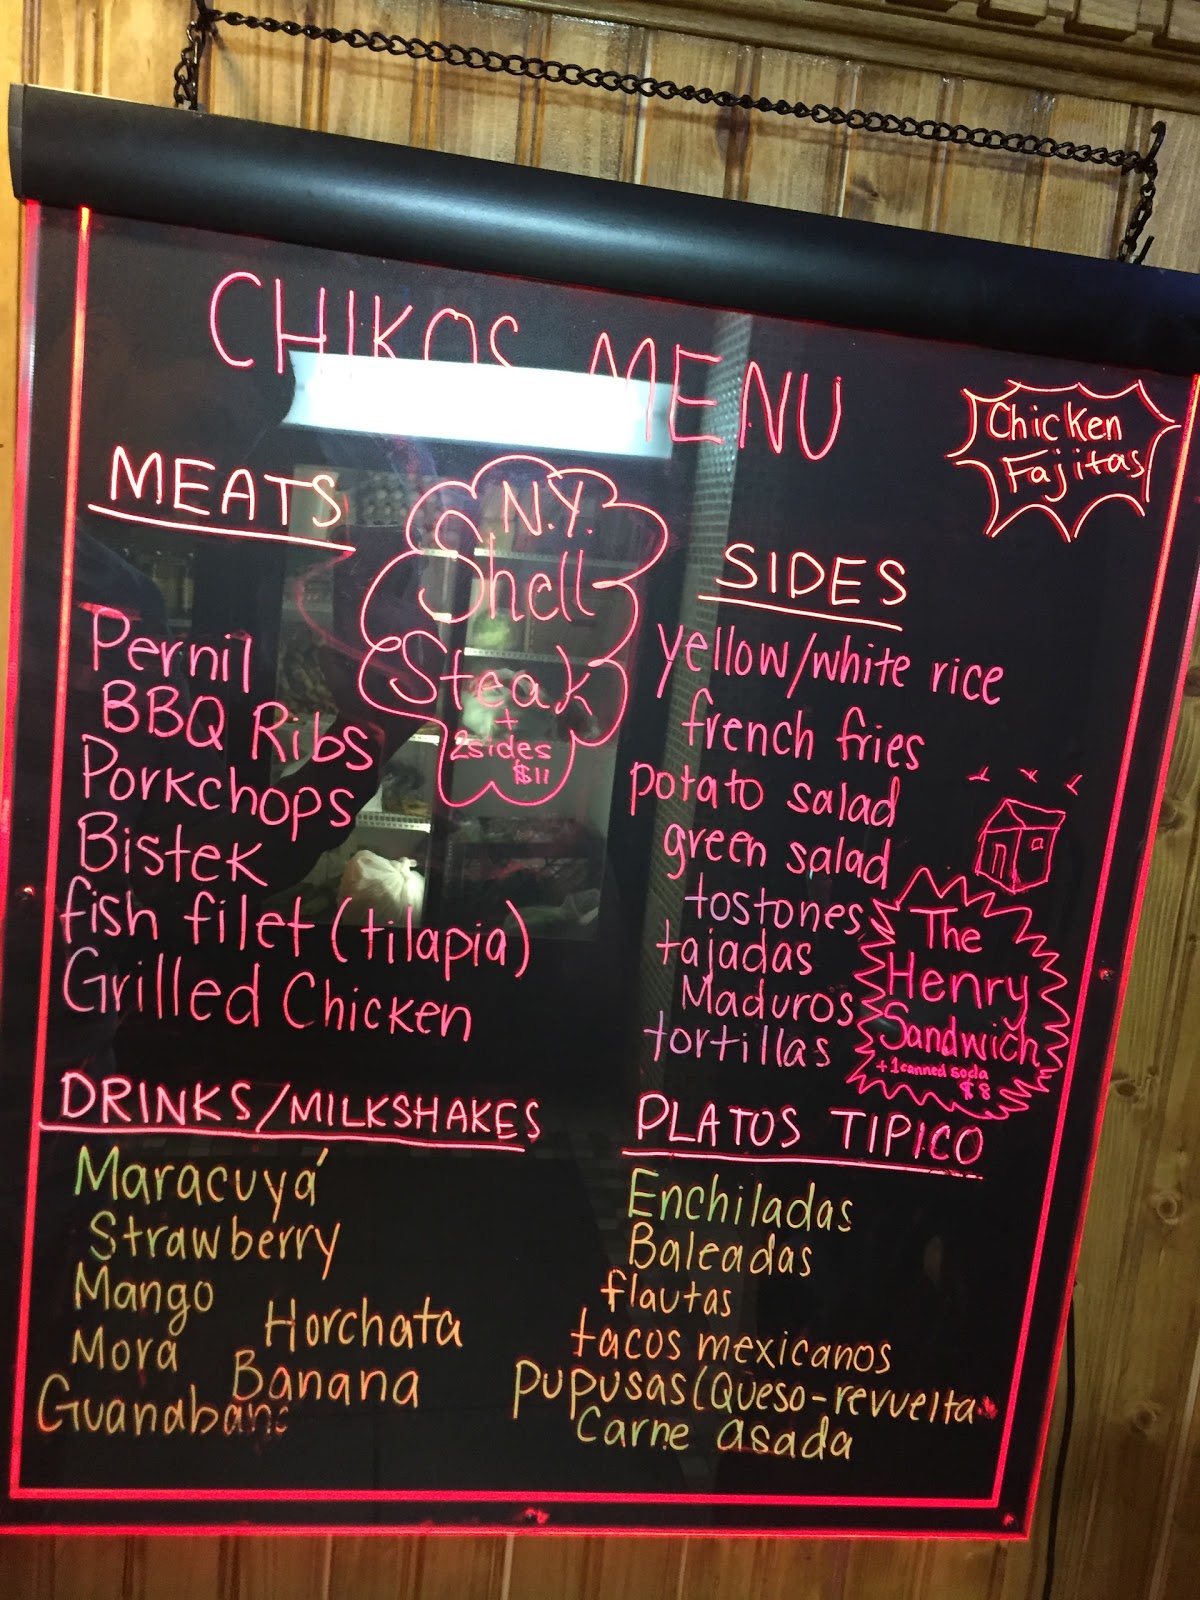 CHIKOS MENU
Chicken
Fajitas
MEATS
Pernil
BBQ Ribs
Porkchops
Bistek
fish filet (tilapia)
Grilled Chicken
N.Y.
Shell
Steak
+
2sides
$11
SIDES
yellow/white rice
french fries
potato salad
green salad
tostones
tajadas
Maduros
tortillas
The
Henry
Sandwich
+1canned soda
$8
DRINKS/MILKSHAKES
Maracuyá
Strawberry
Mango
Mora
Guanabana
Horchata
Banana
PLATOS TIPICO
Enchiladas
Baleadas
flautas
tacos mexicanos
pupusas(Queso-revuelta
Carne asada